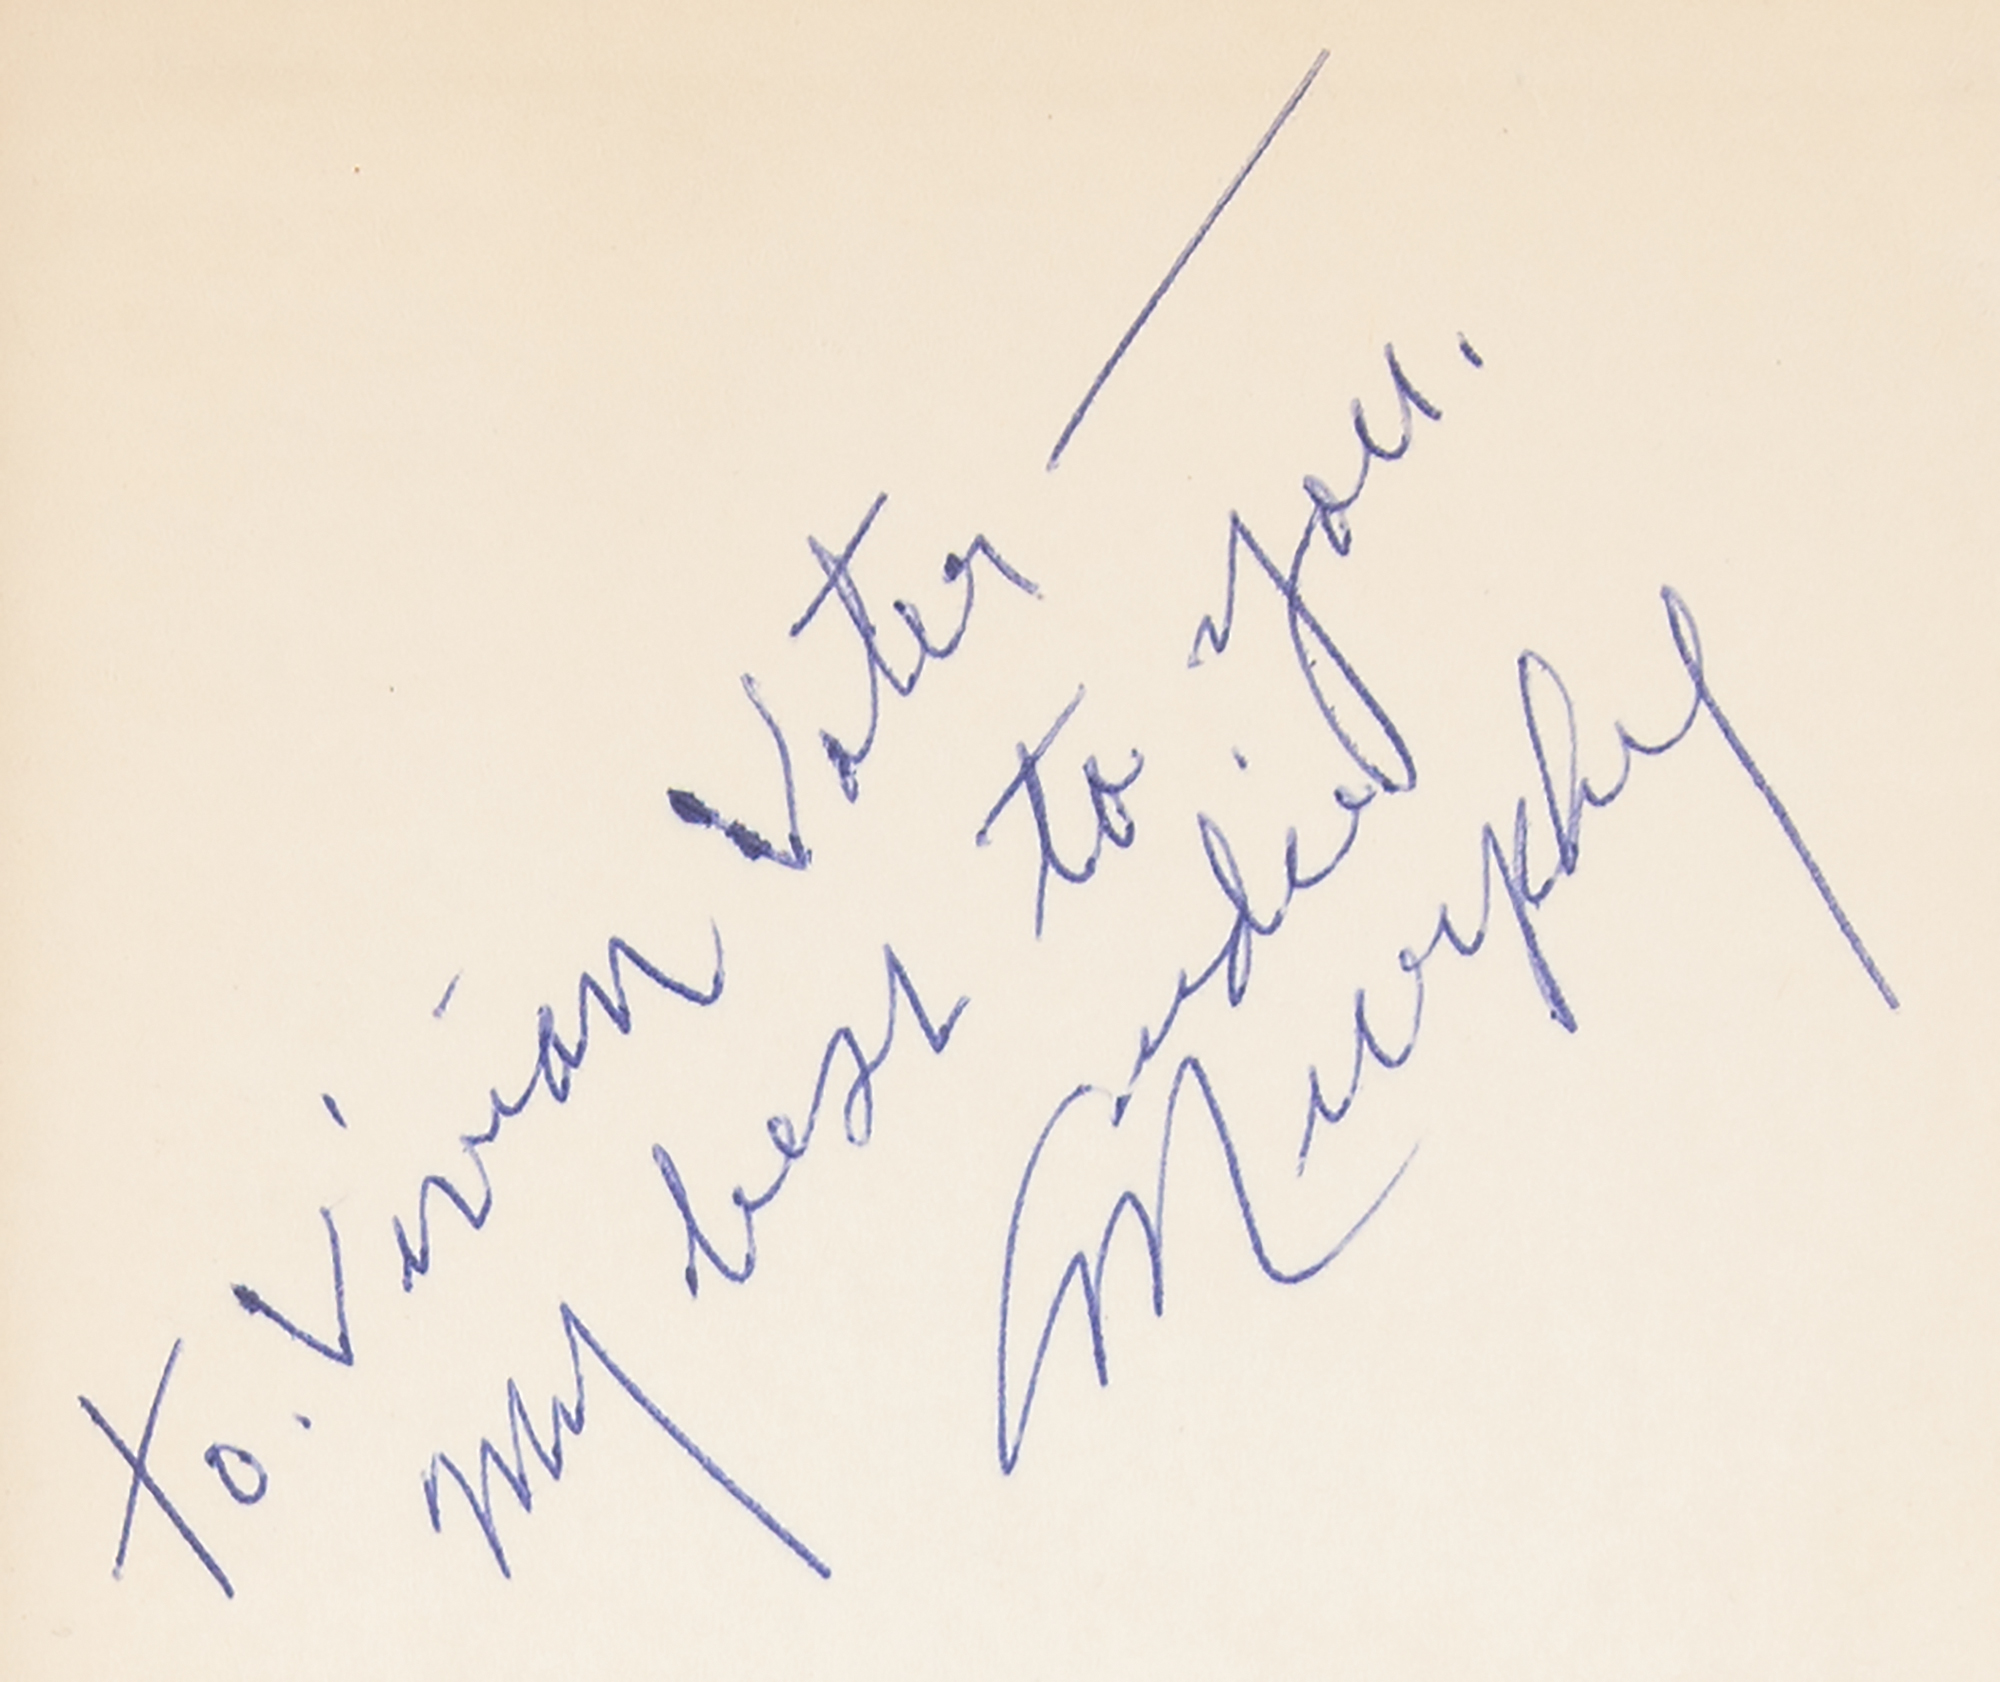 To: Vivian Vater —
My best to you.
Audie
Murphy